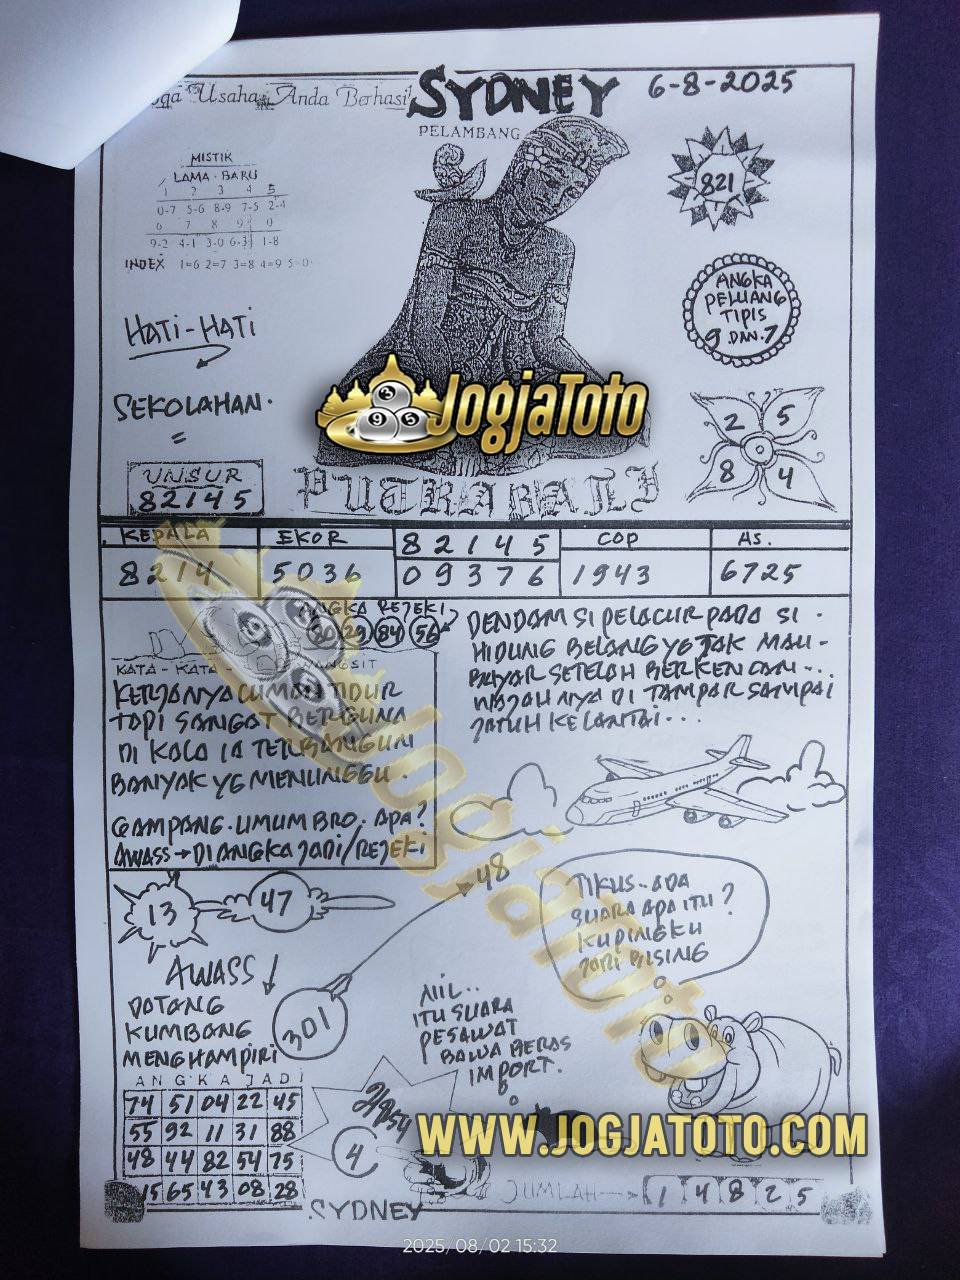 Usaha Anda Berhasil
SYDNEY
6-8-2025
PELAMBANG
MISTIK
LAMA - BARU
1 2 3 4 5
0-7 5-6 8-9 7-5 2-4
6 7 8 9 0
9-2 4-1 3-0 6-3 1-8
INDEX 1=6 2=7 3=8 4=9 5=0
821
ANGKA
PELUANG
TIPIS
9 DAN 7
HATI-HATI
SEKOLAHAN.
JogjaToto
2 5
8 4
UNSUR
82145
PUTRA BALI
KEPALA EKOR 82145 COP AS.
8214 5036 09376 1943 6725
ANGKA REJEKI
80 29 84 56
KATA - KATA
KERJANYA CUMAN TIDUR
TAPI SANGAT BERGUNA
DI KALA IA TERBANGUN
BANYAK YG MENUNGGU.
GAMPANG.UMUM BRO. APA?
AWASS→DI ANGKA JADI/REJEKI
DENDAM SI PELACUR PADA SI
HIDUNG BELANG YG TAK MAU-
BAYAR SETELAH BERKENCAN...
WAJAHNYA DI TAMPAR SAMPAI
JATUH KE LANTAI...
13
47
48
301
AWASS
DATANG
KUMBANG
MENGHAMPIRI
TIKUS..ADA
SUARA APA ITU?
KUPINGKU
JADI BISING
ITU SUARA
PESAWAT
BAWA BERAS
IMPORT.
ANGKA JADI
74 51 04 22 45
55 92 11 31 88
48 44 82 54 75
15 65 43 08 28
4
WWW.JOGJATOTO.COM
JUMLAH
1 4 8 2 5
SYDNEY
JogjaToto
2025/08/02 15:32